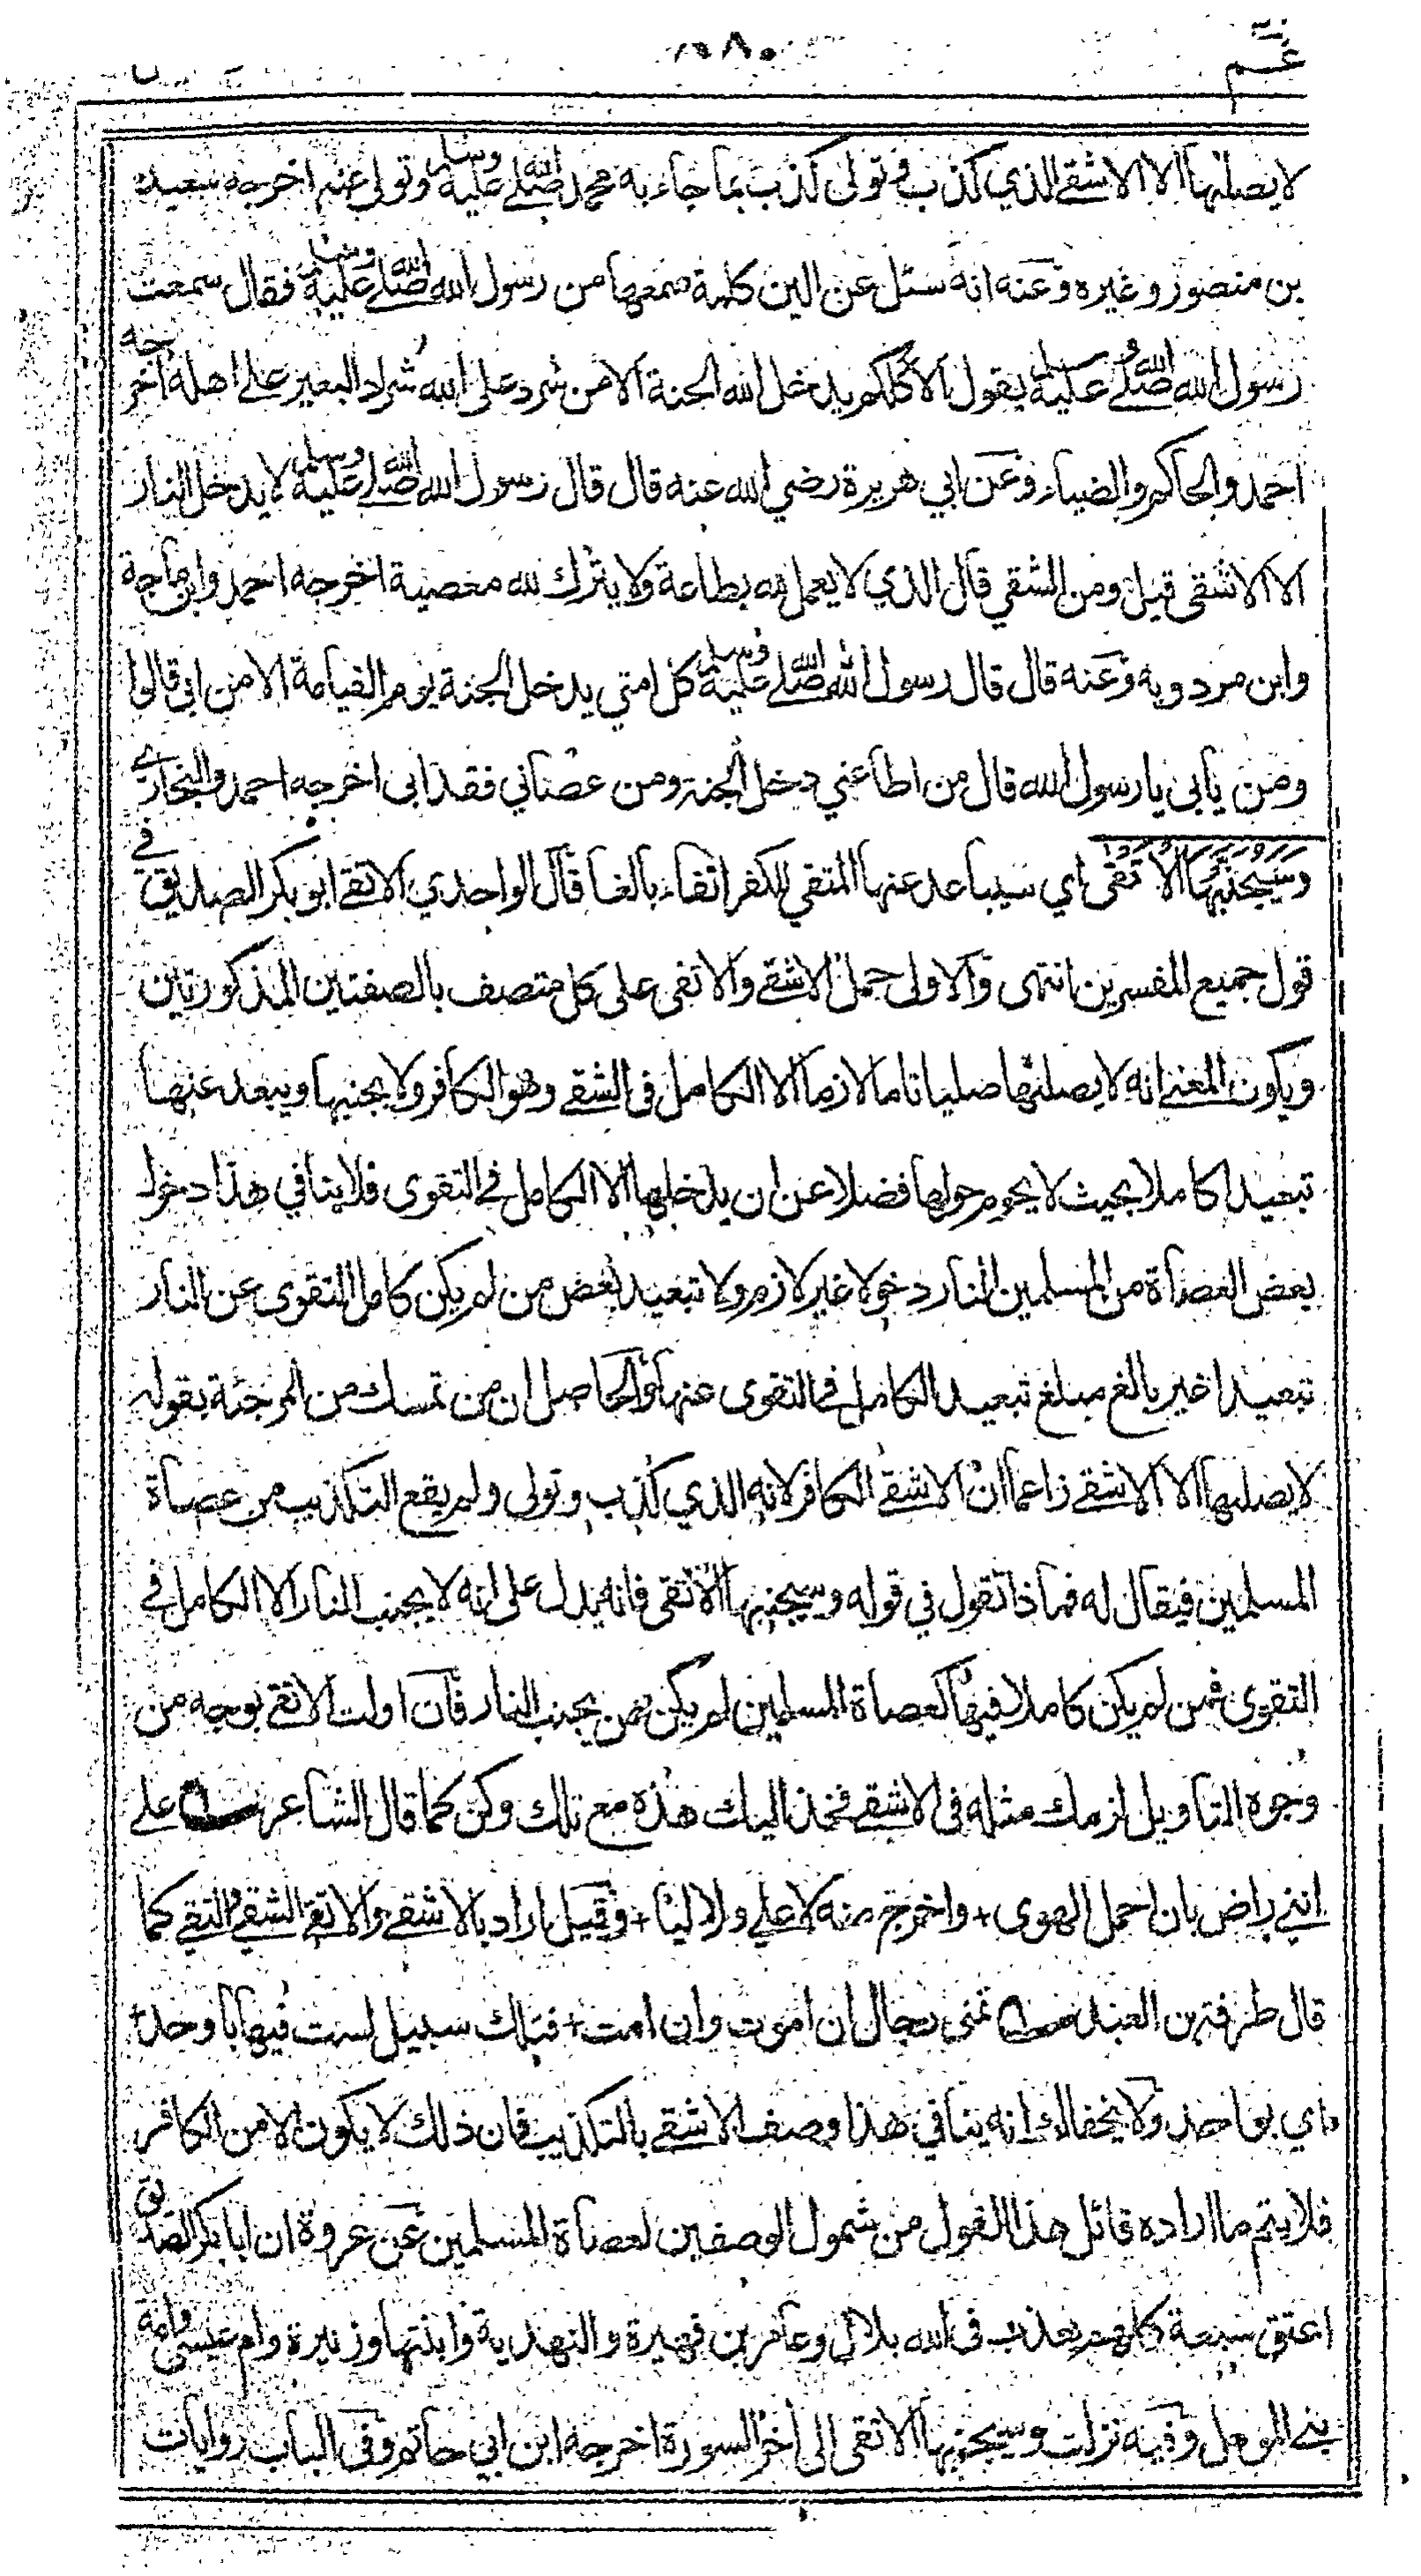 عـم
لا يصلىها الا الاشقى الذي كذب وتولى كذب بما جاء به محمد صلى الله عليه وسلم وتولى عنه اخرجه سعيد
بن منصور وغيره وعنه انه سئل عن الين كلمة سمعها من رسول الله صلى الله عليه وسلم فقال سمعت
رسول الله صلى الله عليه وسلم يقول الا كلكم يدخل الله الجنة الا من شرد على الله شراد البعير على اهله اخرجه
احمد والحاكم والضياء وعن ابي هريرة رضي الله عنه قال قال رسول الله صلى الله عليه وسلم لا يدخل النار
الا الاشقى قيل ومن الشقي قال الذي لا يعمل لله بطاعة ولا يترك لله معصية اخرجه احمد وابن ماجة
وابن مردويه وعنه قال قال رسول الله صلى الله عليه وسلم كل امتي يدخل الجنة يوم القيامة الا من ابى قالوا
ومن يابى يا رسول الله قال من اطاعني دخل الجنة ومن عصاني فقد ابى اخرجه احمد والبخاري
وَسَيُجَنَّبُهَا الْاَتْقَى اي سيباعد عنها المتقي للكفر اتقاء بالغا قال الواحدي الاتقى ابو بكر الصديق في
قول جميع المفسرين انتهى والاولى حمل الاشقى والاتقى على كل متصف بالصفتين المذكورتين
ويكون المعنى انه لا يصلىها صليا تاما لازما الا الكامل في الشقى وهو الكافر ولا يجنبها ويبعد عنها
تبعيدا كاملا بحيث لا يحوم حولها فضلا عن ان يدخلها الا الكامل في التقوى فلا ينافي هذا دخول
بعض العصاة من المسلمين النار دخولا غير لازم ولا تبعيد بعض من لم يكن كامل التقوى عن النار
تبعيدا غير بالغ مبلغ تبعيد الكامل في التقوى عنها والحاصل ان من تمسك من المرجئة بقوله
لا يصلىها الا الاشقى زاعما ان الاشقى الكافر لانه الذي كذب وتولى ولم يقع التكذيب من عصاة
المسلمين فيقال له فما ذا تقول في قوله وسيجنبها الاتقى فانه يدل على انه لا يجنب النار الا الكامل في
التقوى فمن لم يكن كاملا فيها كعصاة المسلمين لم يكن ممن يجنب النار فان اولت الاتقى بوجه من
وجوه التاويل لزمك مثله في الاشقى فخذ اليك هذه مع تلك وكن كما قال الشاعر على
انني راض بان احمل الهوى + واخرج منه لا علي ولا ليا + وقيل اراد بالاشقى والاتقى الشقي والتقي كما
قال طرفة بن العبد تمنى رجال ان اموت وان امت + فتلك سبيل لست فيها باوحد +
اي بواحد ولا يخفاك انه ينافي هذا وصف الاشقى بالتكذيب فان ذلك لا يكون الا من الكافر
فلا يتم ما اراده قائل هذا القول من شمول الوصفين لعصاة المسلمين عن عروة ان ابا بكر الصديق
اعتق سبعة كلهم يعذب في الله بلال وعامر بن فهيرة والنهدية وابنتها وزنيرة وام عيسى وامة
بني المومل وفيه نزلت وسيجنبها الاتقى الى اخر السورة اخرجه ابن ابي حاتم وفي الباب روايات